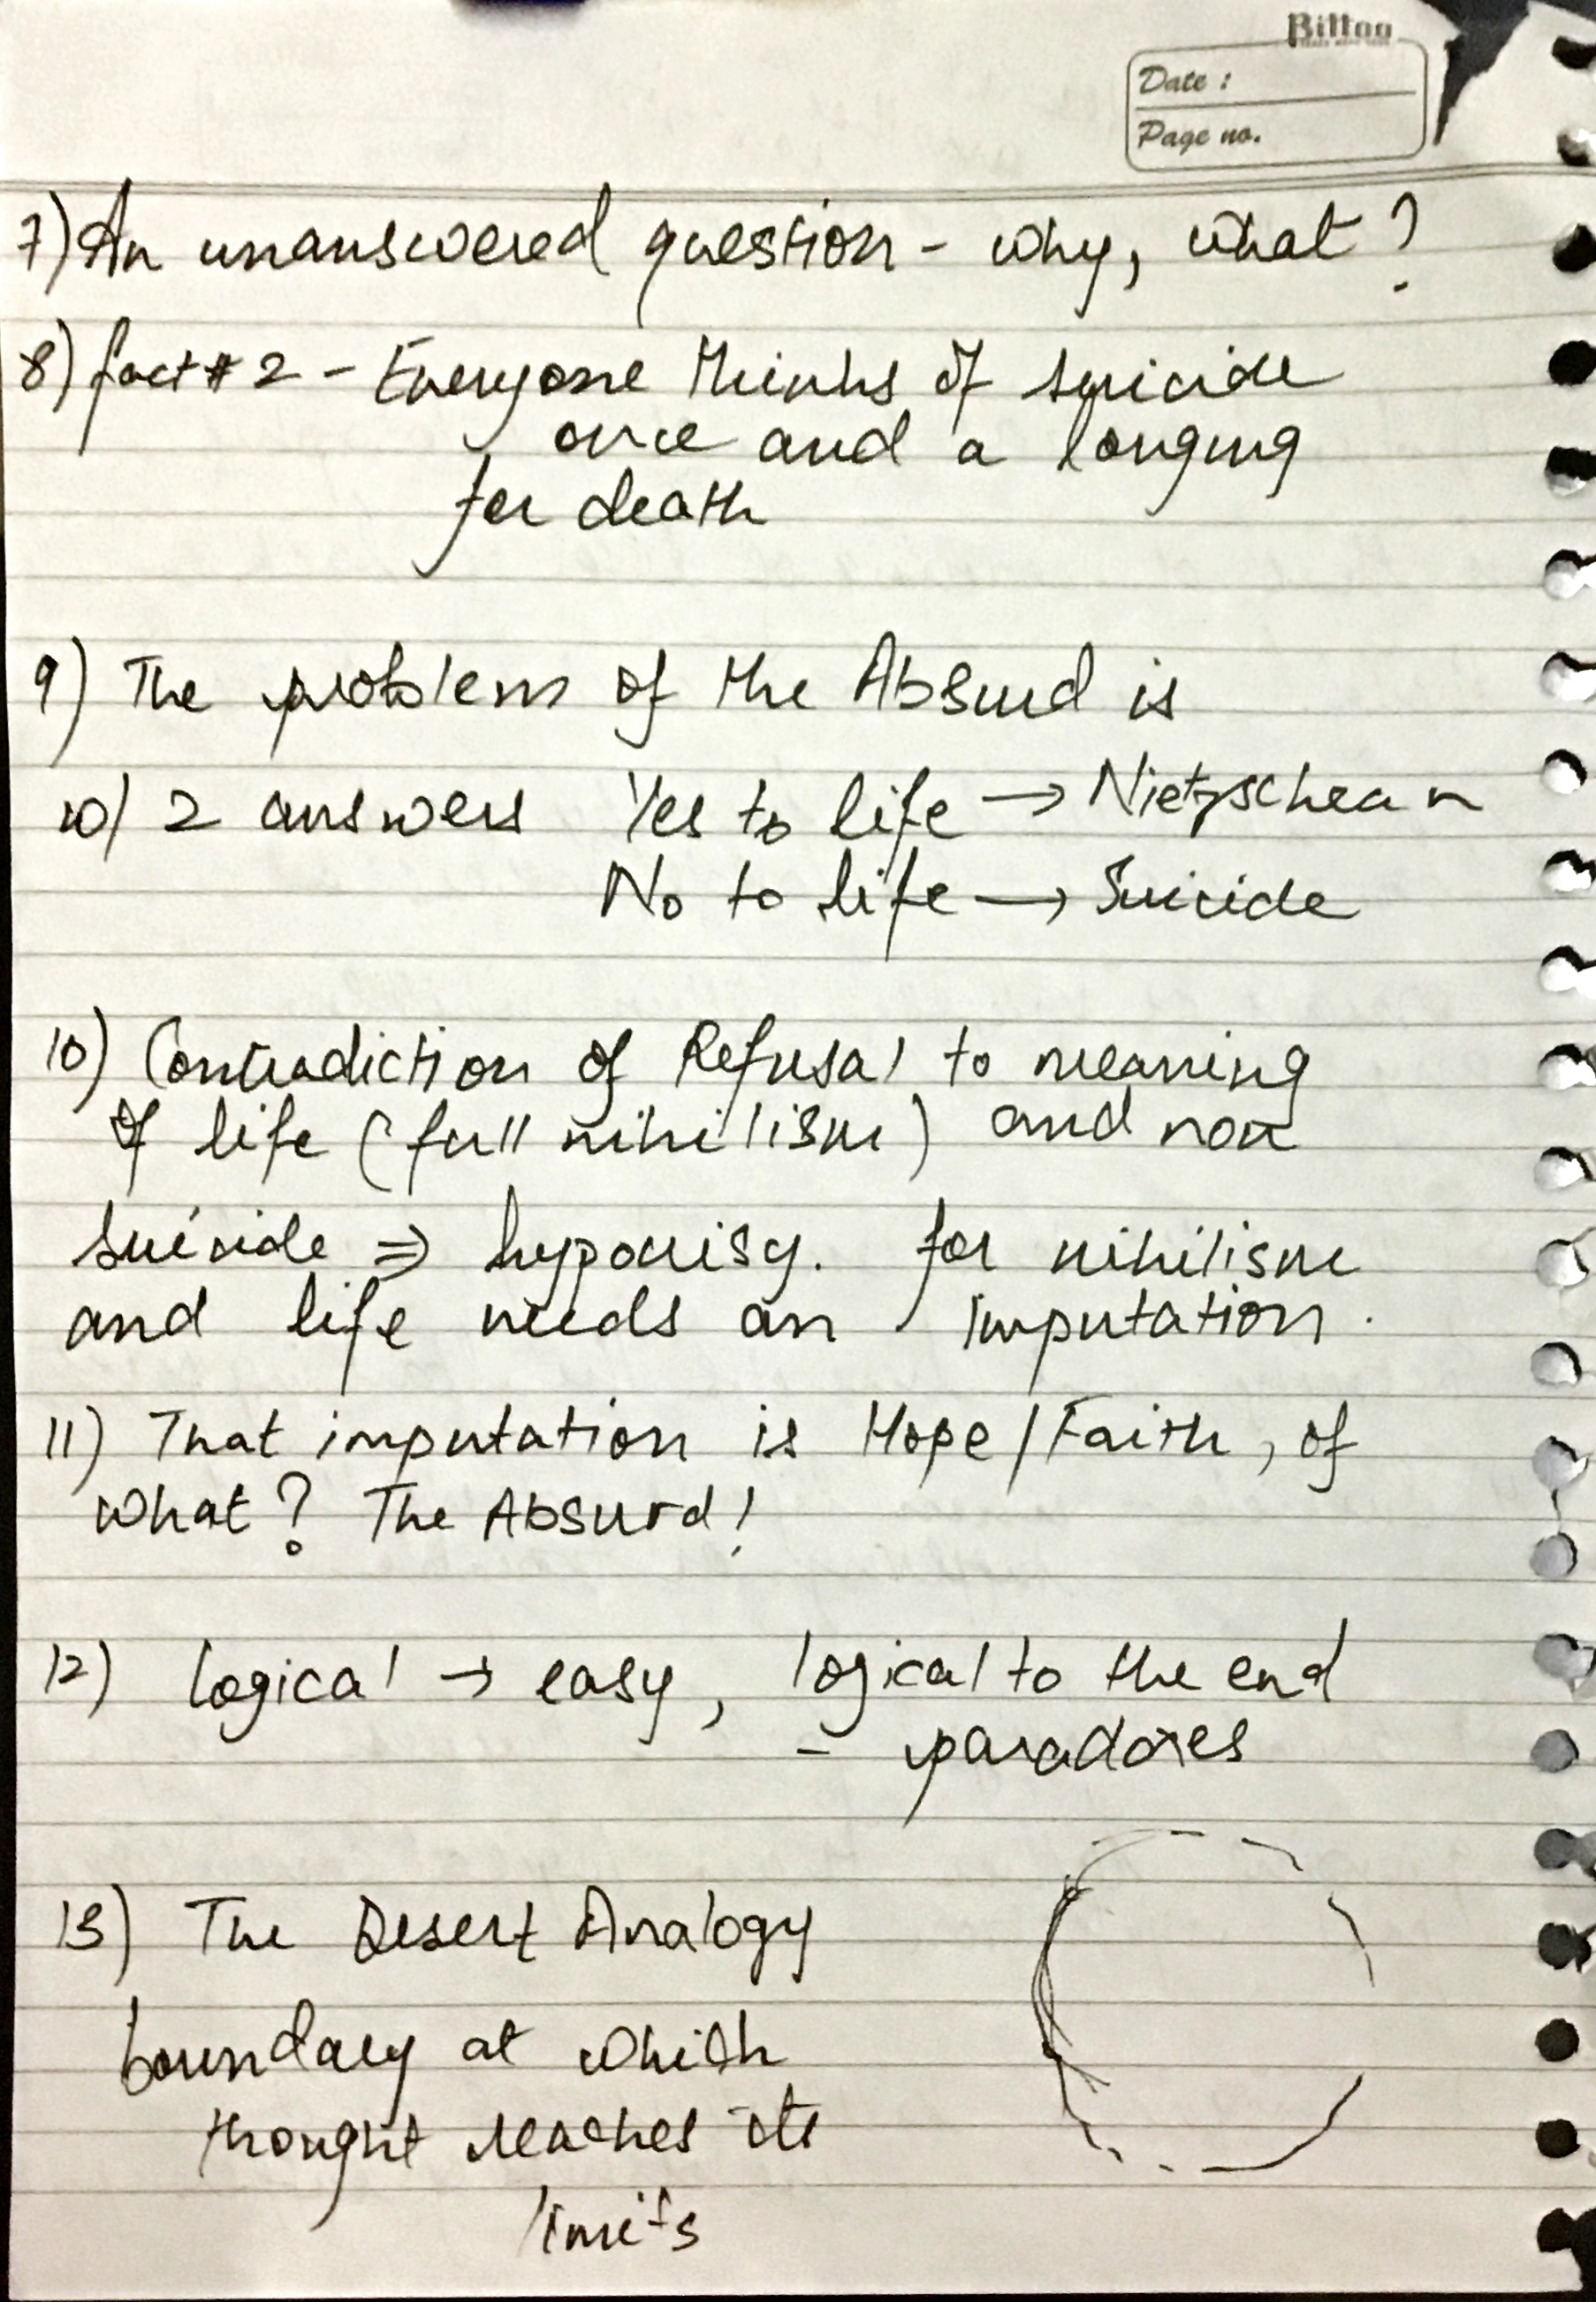 Billoo
Date :
Page no.
7) An unanswered question - why, what ?
8) fact # 2 - Everyone thinks of suicide
once and a longing
for death
9) The problem of the Absurd is
10) 2 answers Yes to life → Nietzschean
No to life → Suicide
10) Contradiction of Refusal to meaning
of life (full nihilism) and non
suicide ⇒ hypocrisy. for nihilism
and life needs an imputation.
11) That imputation is Hope / Faith, of
what? The Absurd!
12) logical → easy, logical to the end
- paradoxes
13) The Desert Analogy
boundary at which
thought reaches its
limits